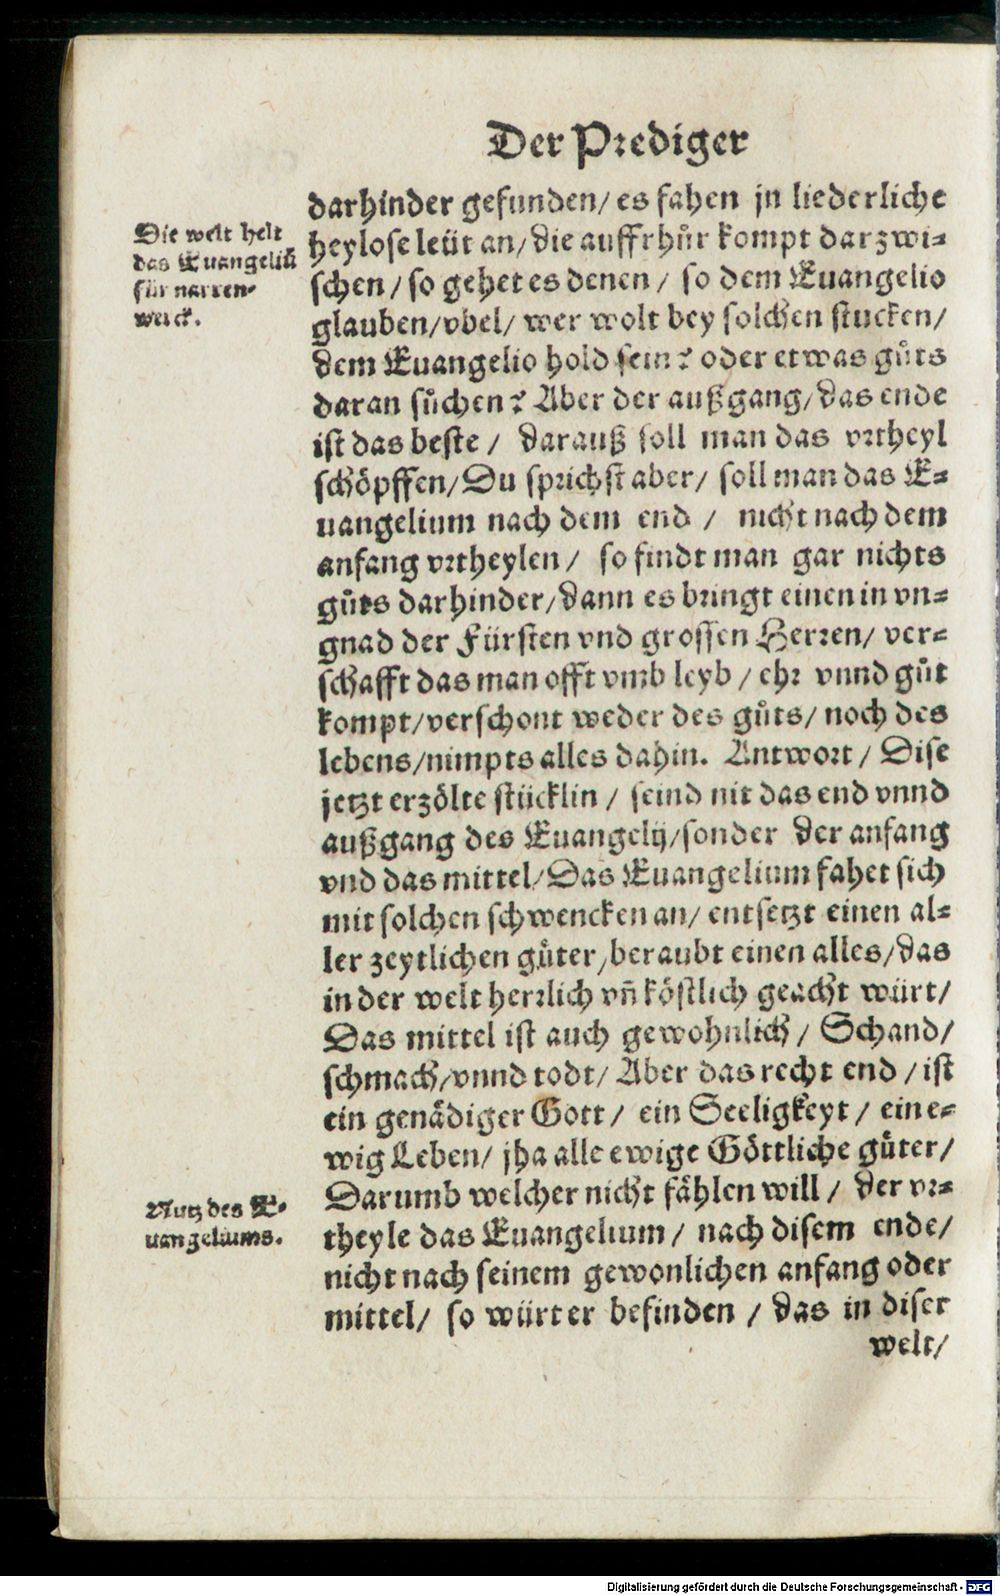 Der Prediger
darhinder gefunden/ es fahen jn liederliche
heylose leüt an/ die auffrhůr kompt darzwi⸗
schen/ so gehet es denen/ so dem Euangelio
glauben/ vbel/ wer wolt bey solchen stucken/
dem Euangelio hold sein? oder etwas gůts
daran sůchen? Aber der außgang/ das ende
ist das beste/ darauß soll man das vrtheyl
schöpffen/ Du sprichst aber/ soll man das E⸗
uangelium nach dem end/ nicht nach dem
anfang vrtheylen/ so findt man gar nichts
gůts darhinder/ dann es bringt einen in vn⸗
gnad der Fürsten vnd grossen Herren/ ver⸗
schafft das man offt vmb leyb/ ehr vnnd gůt
kompt/ verschont weder des gůts/ noch des
lebens/ nimpts alles dahin. Antwort/ Dise
jetzt erzölte stücklin/ seind nit das end vnnd
außgang des Euangelij/ sonder der anfang
vnd das mittel/ Das Euangelium fahet sich
mit solchen schwencken an/ entsetzt einen al⸗
ler zeytlichen gůter/ beraubt einen alles/ das
in der welt herrlich vñ köstlich geacht würt/
Das mittel ist auch gewohnlich/ Schand/
schmach/ vnnd todt/ Aber das recht end/ ist
ein genädiger Gott/ ein Seeligkeyt/ ein e⸗
wig Leben/ jha alle ewige Göttliche gůter/
Darumb welcher nicht fählen will/ der vr⸗
theyle das Euangelium/ nach disem ende/
nicht nach seinem gewonlichen anfang oder
mittel/ so würt er befinden/ das in diser
welt/
Die welt helt
das Euangeliū
für narren⸗
werck.
Nutz des E⸗
uangeliums.
Digitalisierung gefördert durch die Deutsche Forschungsgemeinschaft - DFG